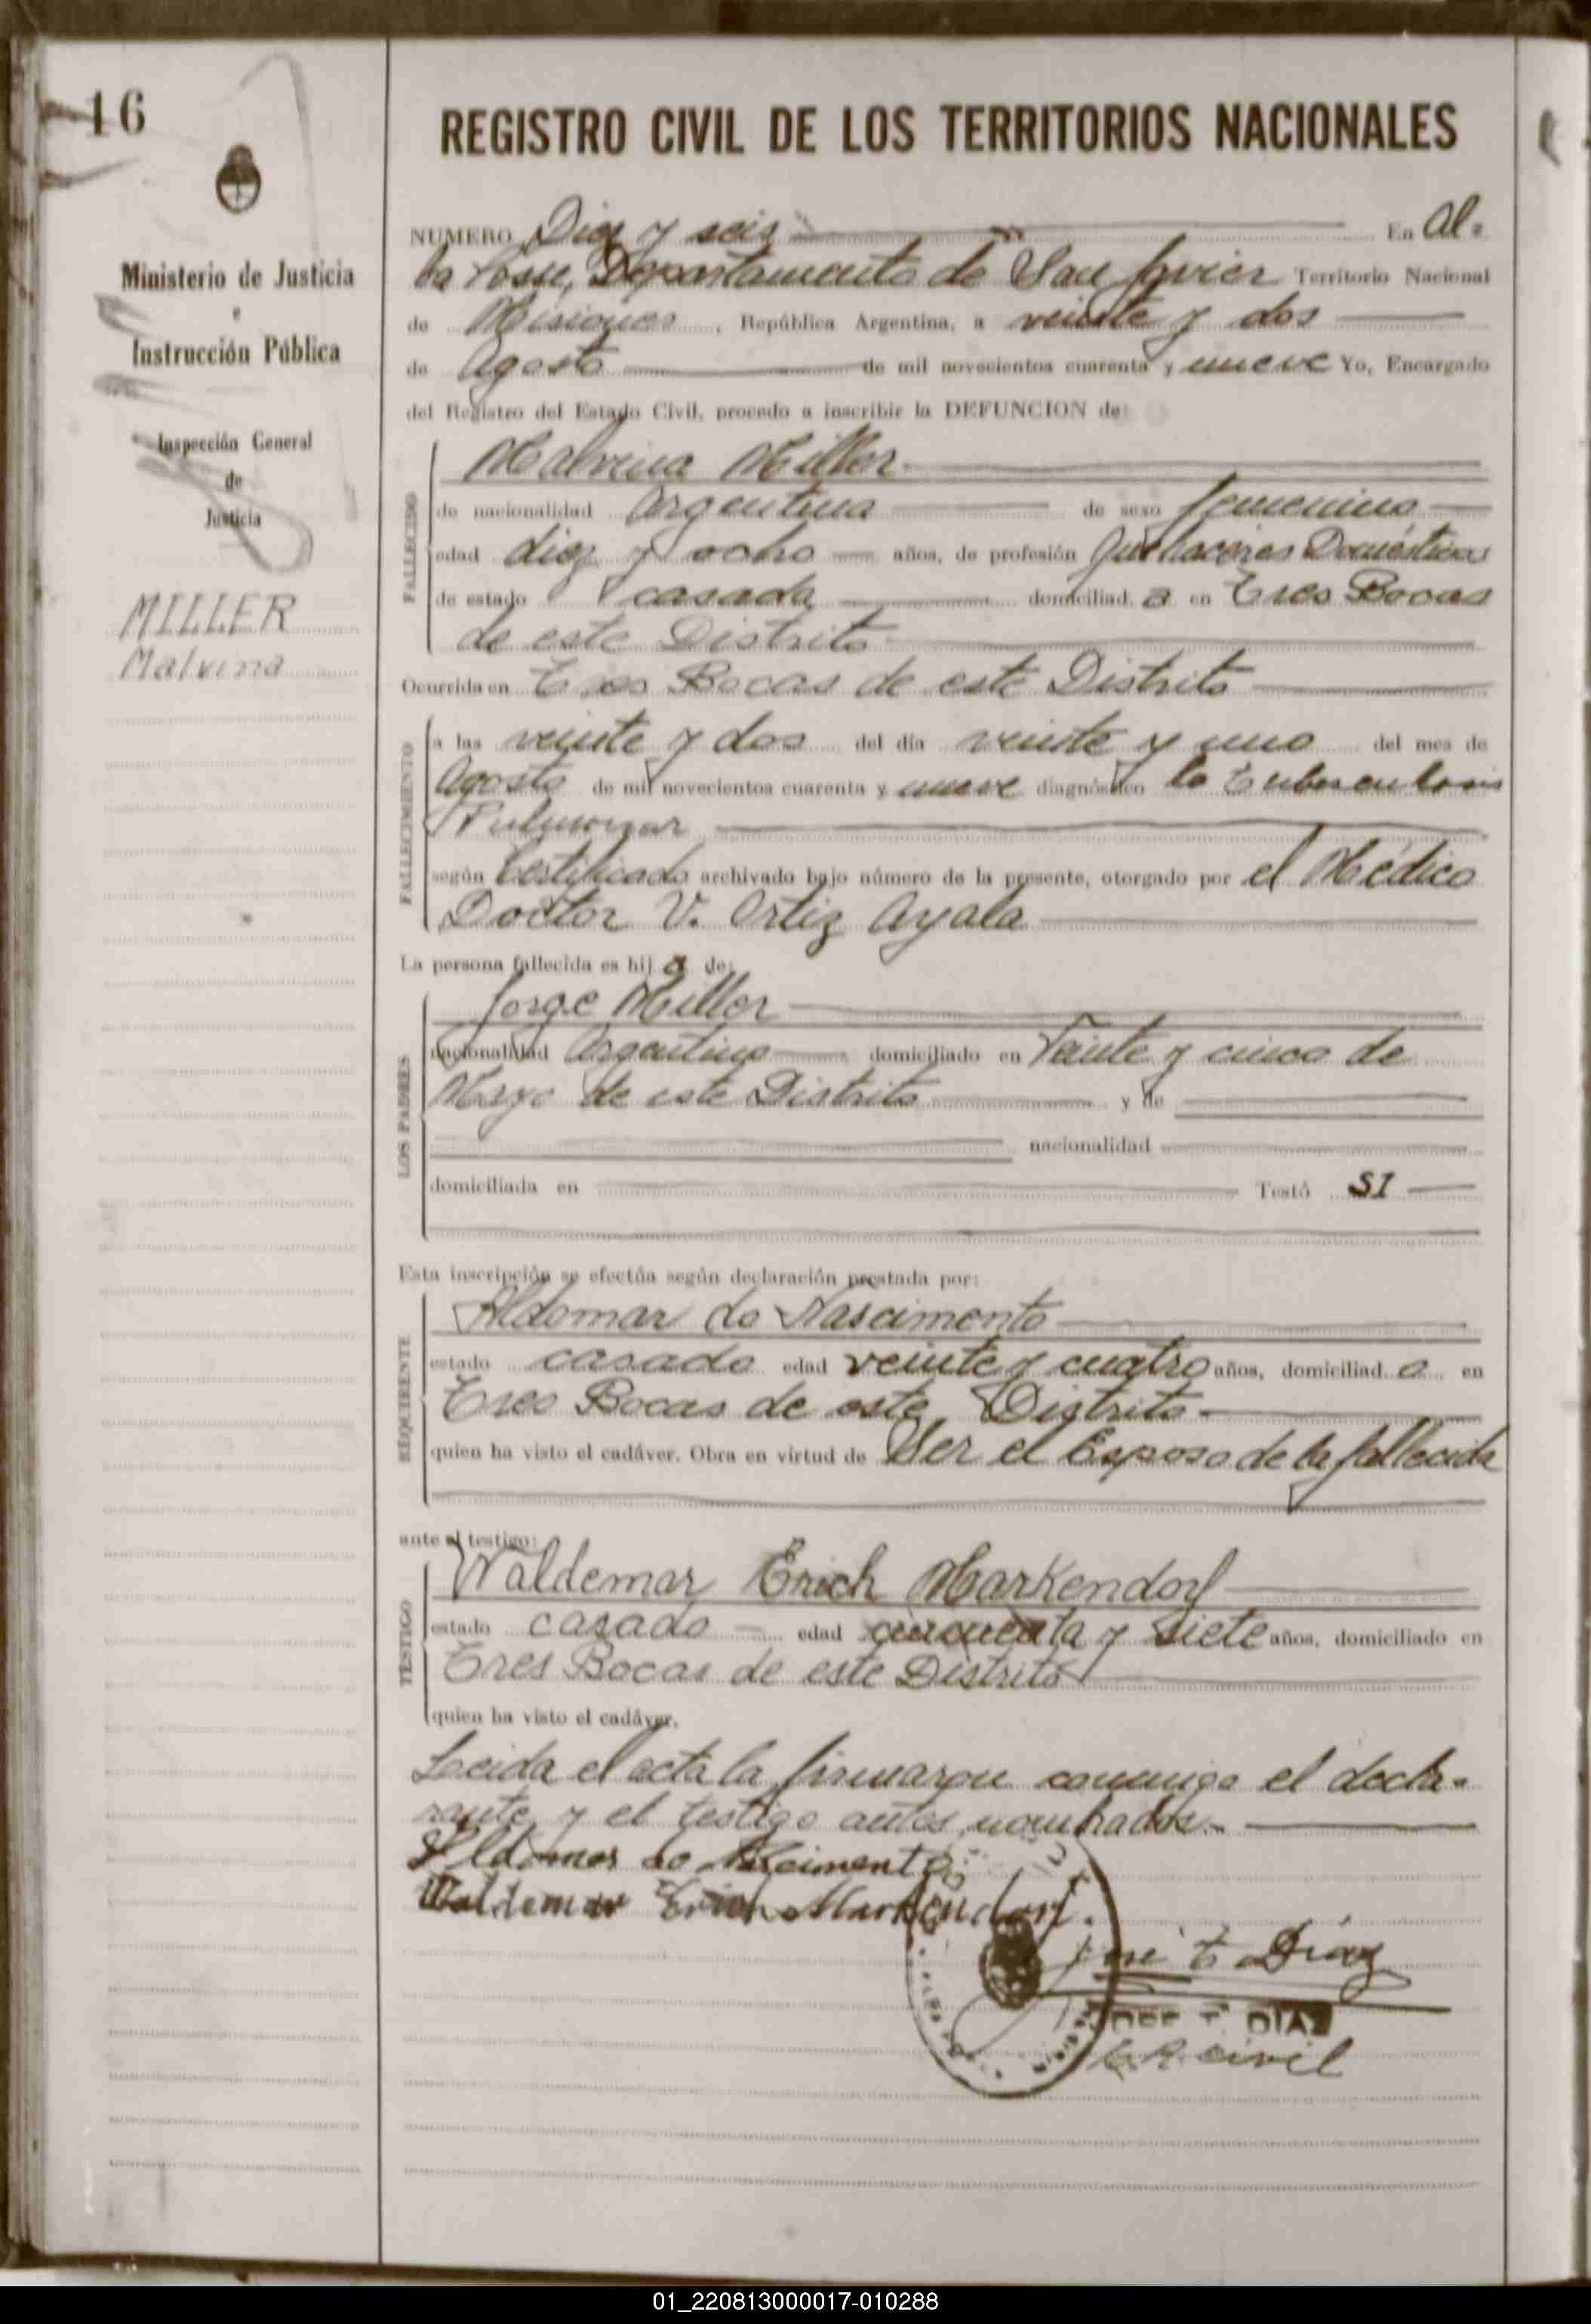 16
REGISTRO CIVIL DE LOS TERRITORIOS NACIONALES
Ministerio de Justicia
e
Instrucción Pública
Inspección General
de
Justicia
MILLER
Malvina
NUMERO Diez y seis En Al=
ba Posse, Departamento de San Javier Territorio Nacional
de Misiones, República Argentina, a veinte y dos
de Agosto de mil novecientos cuarenta y nueve Yo, Encargado
del Registro del Estado Civil, procedo a inscribir la DEFUNCION de:
FALLECIDO
Malvina Miller
de nacionalidad Argentina de sexo femenino
edad diez y ocho años, de profesión Quehaceres Domésticos
de estado casada domiciliad a en Tres Bocas
de este Distrito
Ocurrida en Tres Bocas de este Distrito
FALLECIMIENTO
a las veinte y dos del día veinte y uno del mes de
Agosto de mil novecientos cuarenta y nueve diagnóstico la Tuberculosis
Pulmonar
según Certificado archivado bajo número de la presente, otorgado por el Médico
Doctor V. Ortiz Ayala
La persona fallecida es hij a de:
LOS PADRES
Jorge Miller
nacionalidad Argentino domiciliado en Veinte y cinco de
Mayo de este Distrito y de
nacionalidad
domiciliada en Testó SI
Esta inscripción se efectúa según declaración prestada por:
REQUIRENTE
Aldomar do Nascimento
estado casado edad veinte y cuatro años, domiciliad o en
Tres Bocas de este Distrito
quien ha visto el cadáver. Obra en virtud de Ser el Esposo de la fallecida
ante el testigo:
TESTIGO
Waldemar Erich Markendorf
estado casado edad cincuenta y siete años, domiciliado en
Tres Bocas de este Distrito
quien ha visto el cadáver.
Leida el acta la firmaron conmigo el decla=
rante y el testigo antes nombrados.
Aldomar do Nascimento
Waldemar Erich Markendorf.
José E Díaz
JOSE E. DIAZ
E. R. civil
01_220813000017-010288